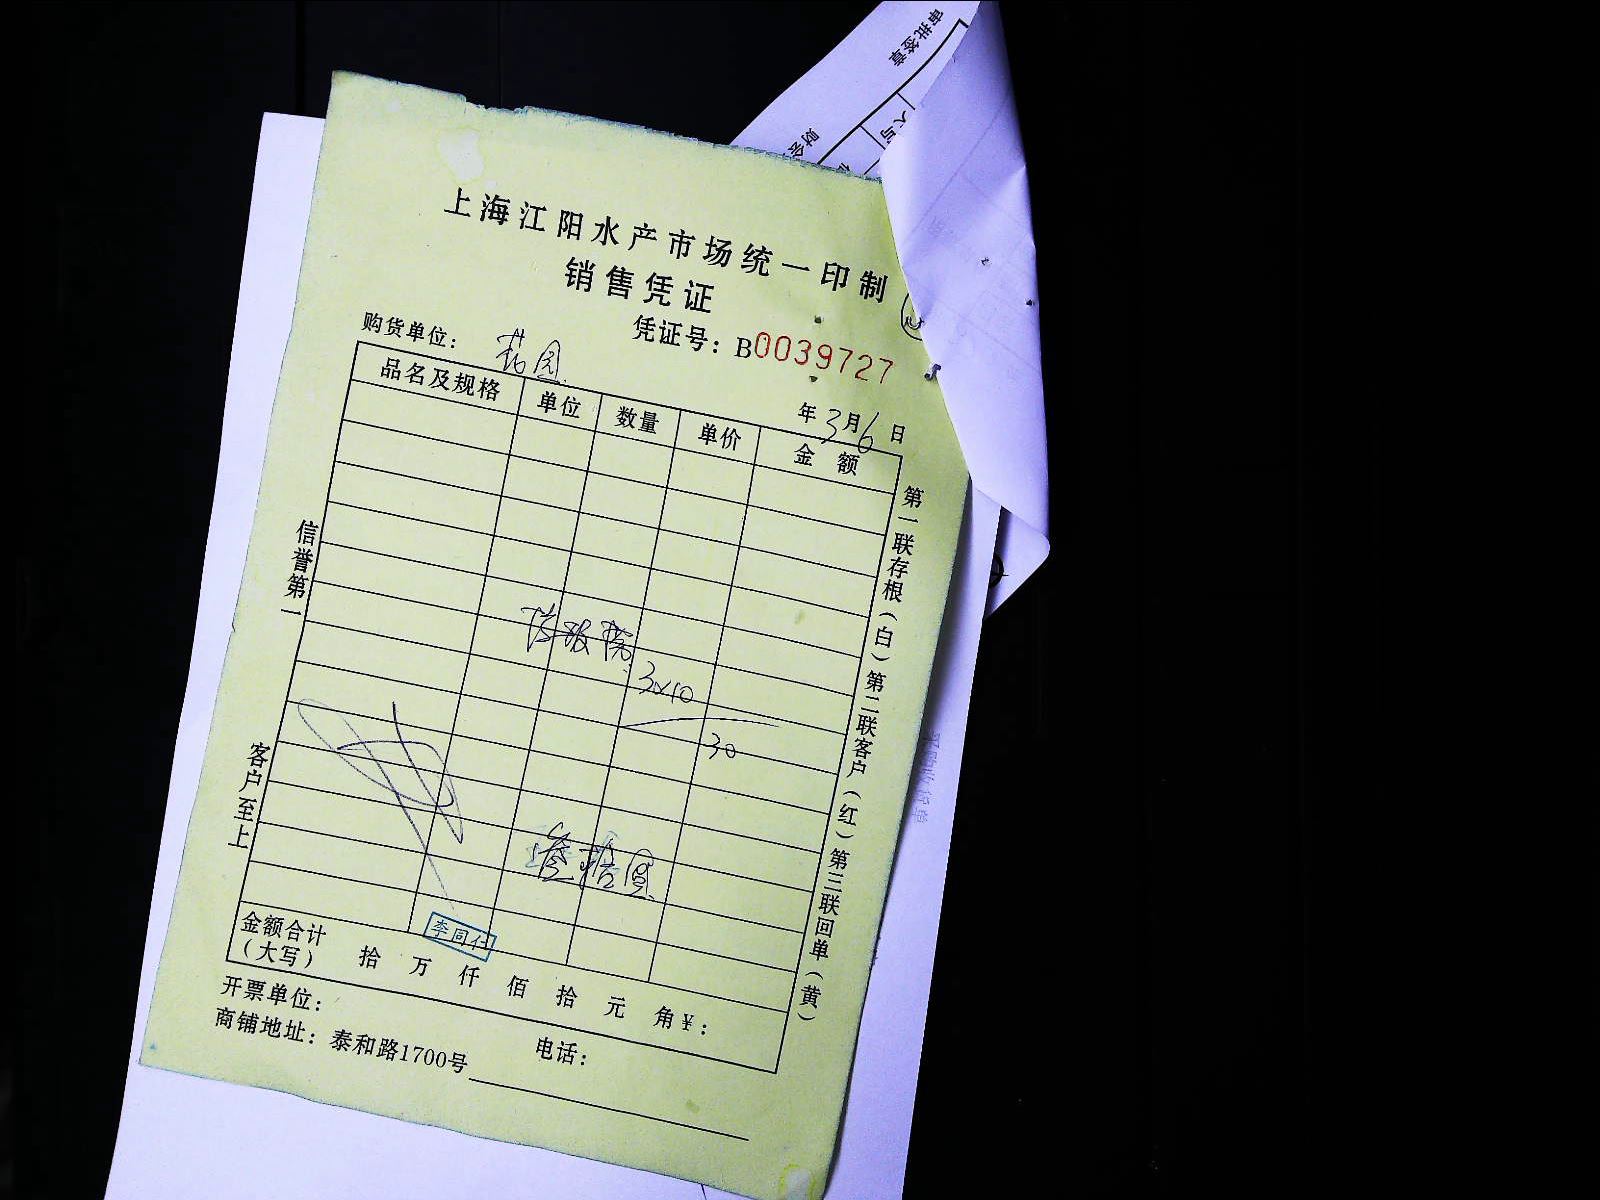 审批签章
大写
财会
上海江阳水产市场统一印制
销售凭证
凭证号：B0039727
购货单位：花园
年3月6日
品名及规格 单位 数量 单价 金额
3×10
30
李同仁
金额合计（大写） 拾 万 仟 佰 拾 元 角 ¥：
开票单位：
商铺地址：泰和路1700号 电话：
信誉第一
客户至上
第一联存根（白）第二联客户（红）第三联回单（黄）